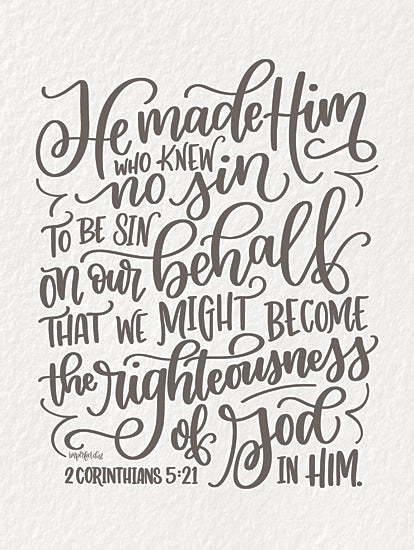 He made Him
who knew
no sin
to be sin
on our behalf
that we might become
the righteousness
of God
in Him.
imperfect dust
2 Corinthians 5:21